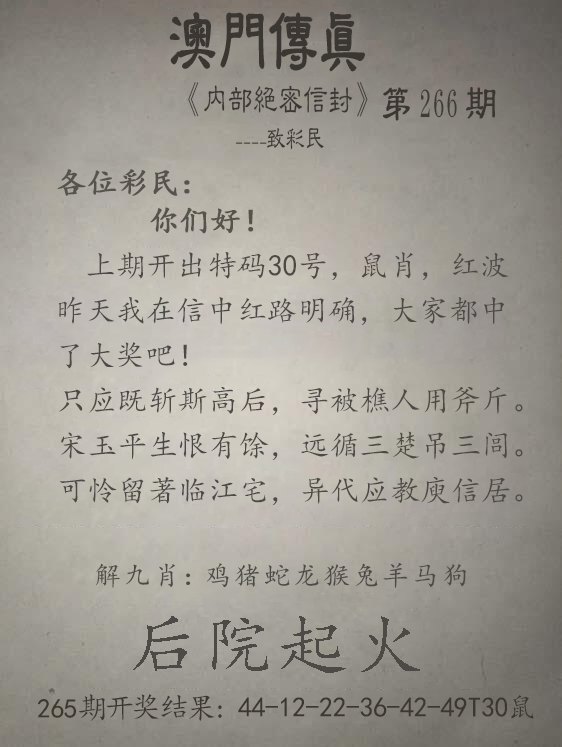 澳門傳眞
《内部絕密信封》第266期
----致彩民
各位彩民：
你们好！
上期开出特码30号，鼠肖，红波
昨天我在信中红路明确，大家都中
了大奖吧！
只应既斩斯高后，寻被樵人用斧斤。
宋玉平生恨有馀，远循三楚吊三闾。
可怜留著临江宅，异代应教庾信居。
解九肖：鸡猪蛇龙猴兔羊马狗
后院起火
265期开奖结果：44-12-22-36-42-49T30鼠